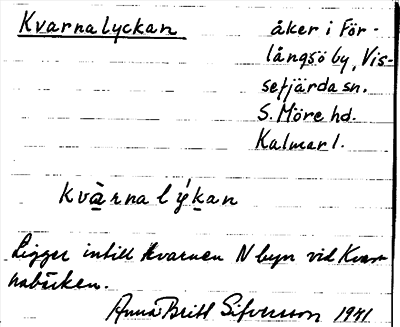 Kvarnalyckan
åker i För-
långsö by, Vis-
sefjärda sn.
S. Möre hd.
Kalmar l.
kvàrnalýkan
Ligger intill kvarnen N byn vid Kvar-
nabäcken.
Anna Britt Sifversson 1941